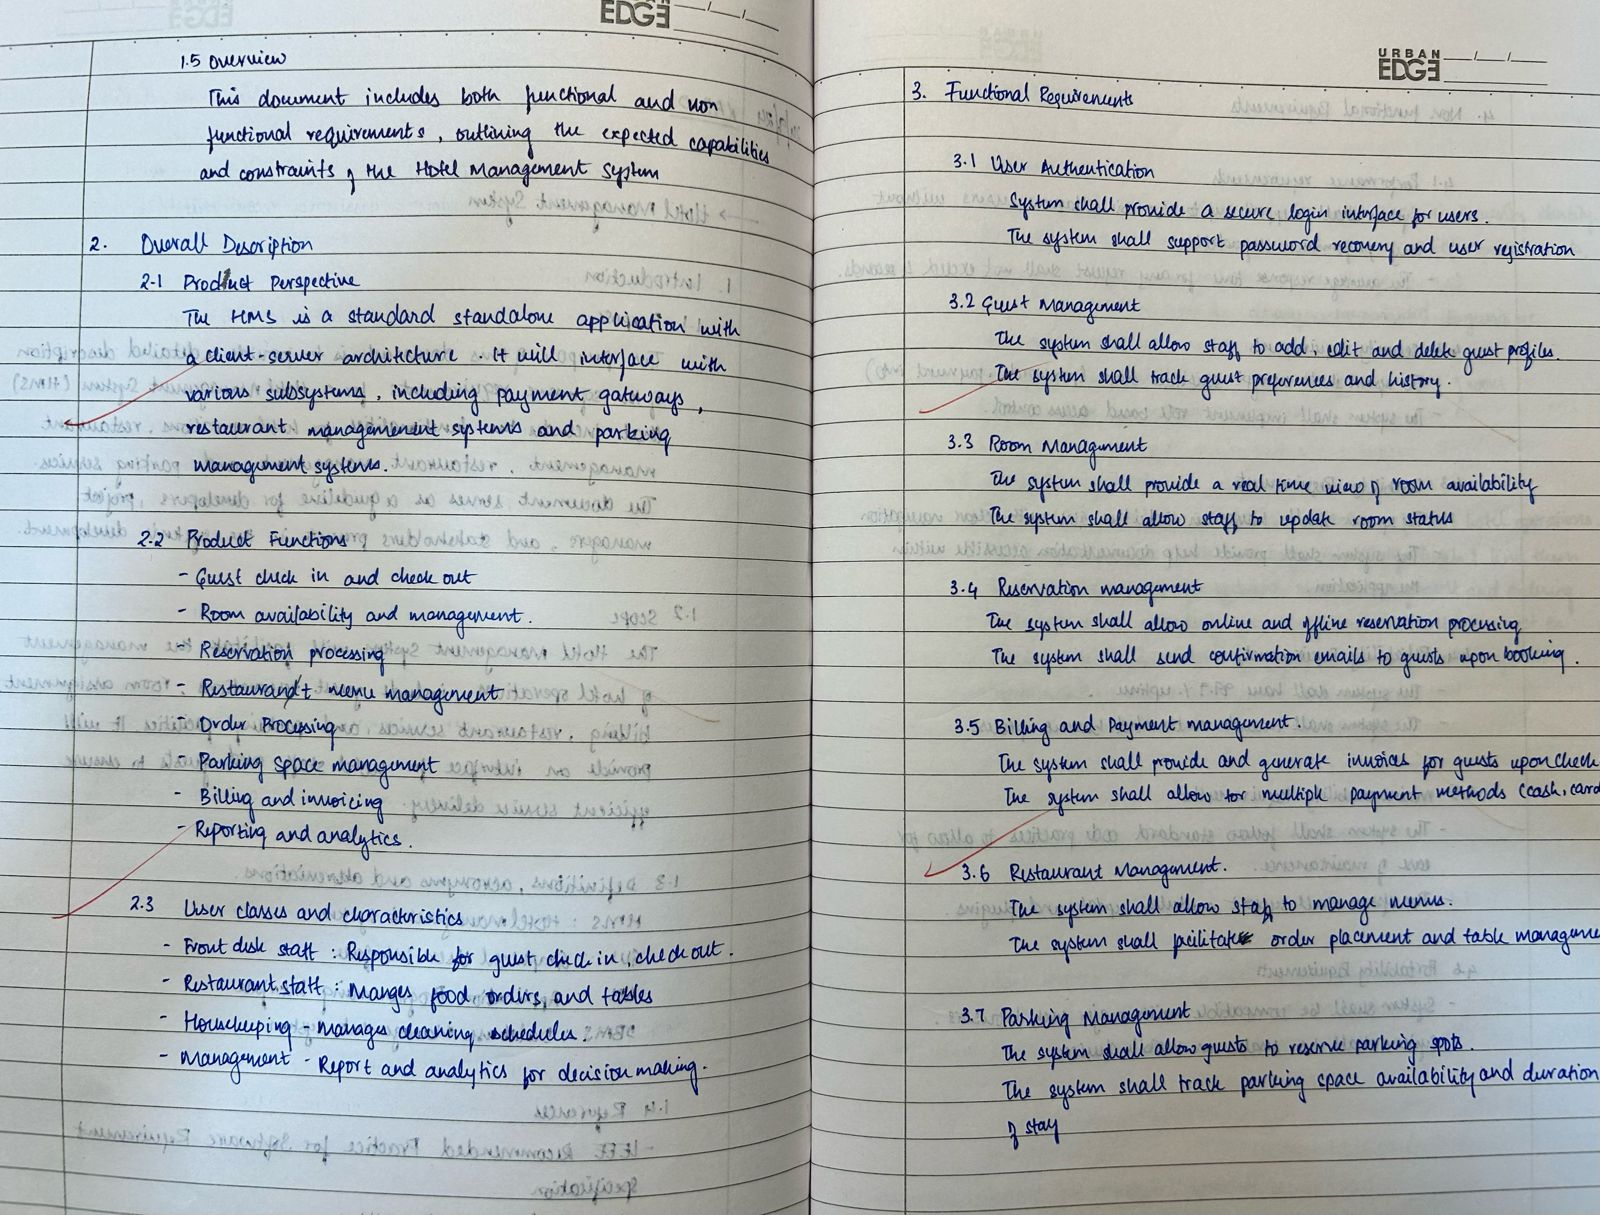 EDGE
1.5 Overview
This document includes both functional and non
functional requirements, outlining the expected capabilities
and constraints of the Hotel Management System
2. Overall Description
2.1 Product Perspective
The HMS is a standard standalone application with
a client-server architecture. It will interface with
various subsystems, including payment gateways,
restaurant management systems and parking
management systems.
2.2 Product Functions
- Guest check in and check out
- Room availability and management.
- Reservation processing
- Restaurant menu management
- Order Processing
- Parking space management
- Billing and invoicing
- Reporting and analytics.
2.3 User classes and characteristics
- Front disk staff : Responsible for guest check in, check out.
- Restaurant staff : Manges food orders, and tables
- Housekeeping - manages cleaning schedules.
- Management - Report and analytics for decision making.
URBAN
EDGE
3. Functional Requirements
3.1 User Authentication
System shall provide a secure login interface for users.
The system shall support password recovery and user registration
3.2 Guest Management
The system shall allow staff to add, edit and delete guest profiles.
The system shall track guest preferences and history.
3.3 Room Management
The system shall provide a real time view of room availability
The system shall allow staff to update room status
3.4 Reservation management
The system shall allow online and offline reservation processing
The system shall send confirmation emails to guests upon booking.
3.5 Billing and Payment management.
The system shall provide and generate invoices for guests upon check
The system shall allow for multiple payment methods (cash, card
3.6 Restaurant Management.
The system shall allow staff to manage menus.
The system shall facilitate order placement and table manageme
3.7 Parking Management
The system shall allow guests to reserve parking spots.
The system shall track parking space availability and duration
of stay